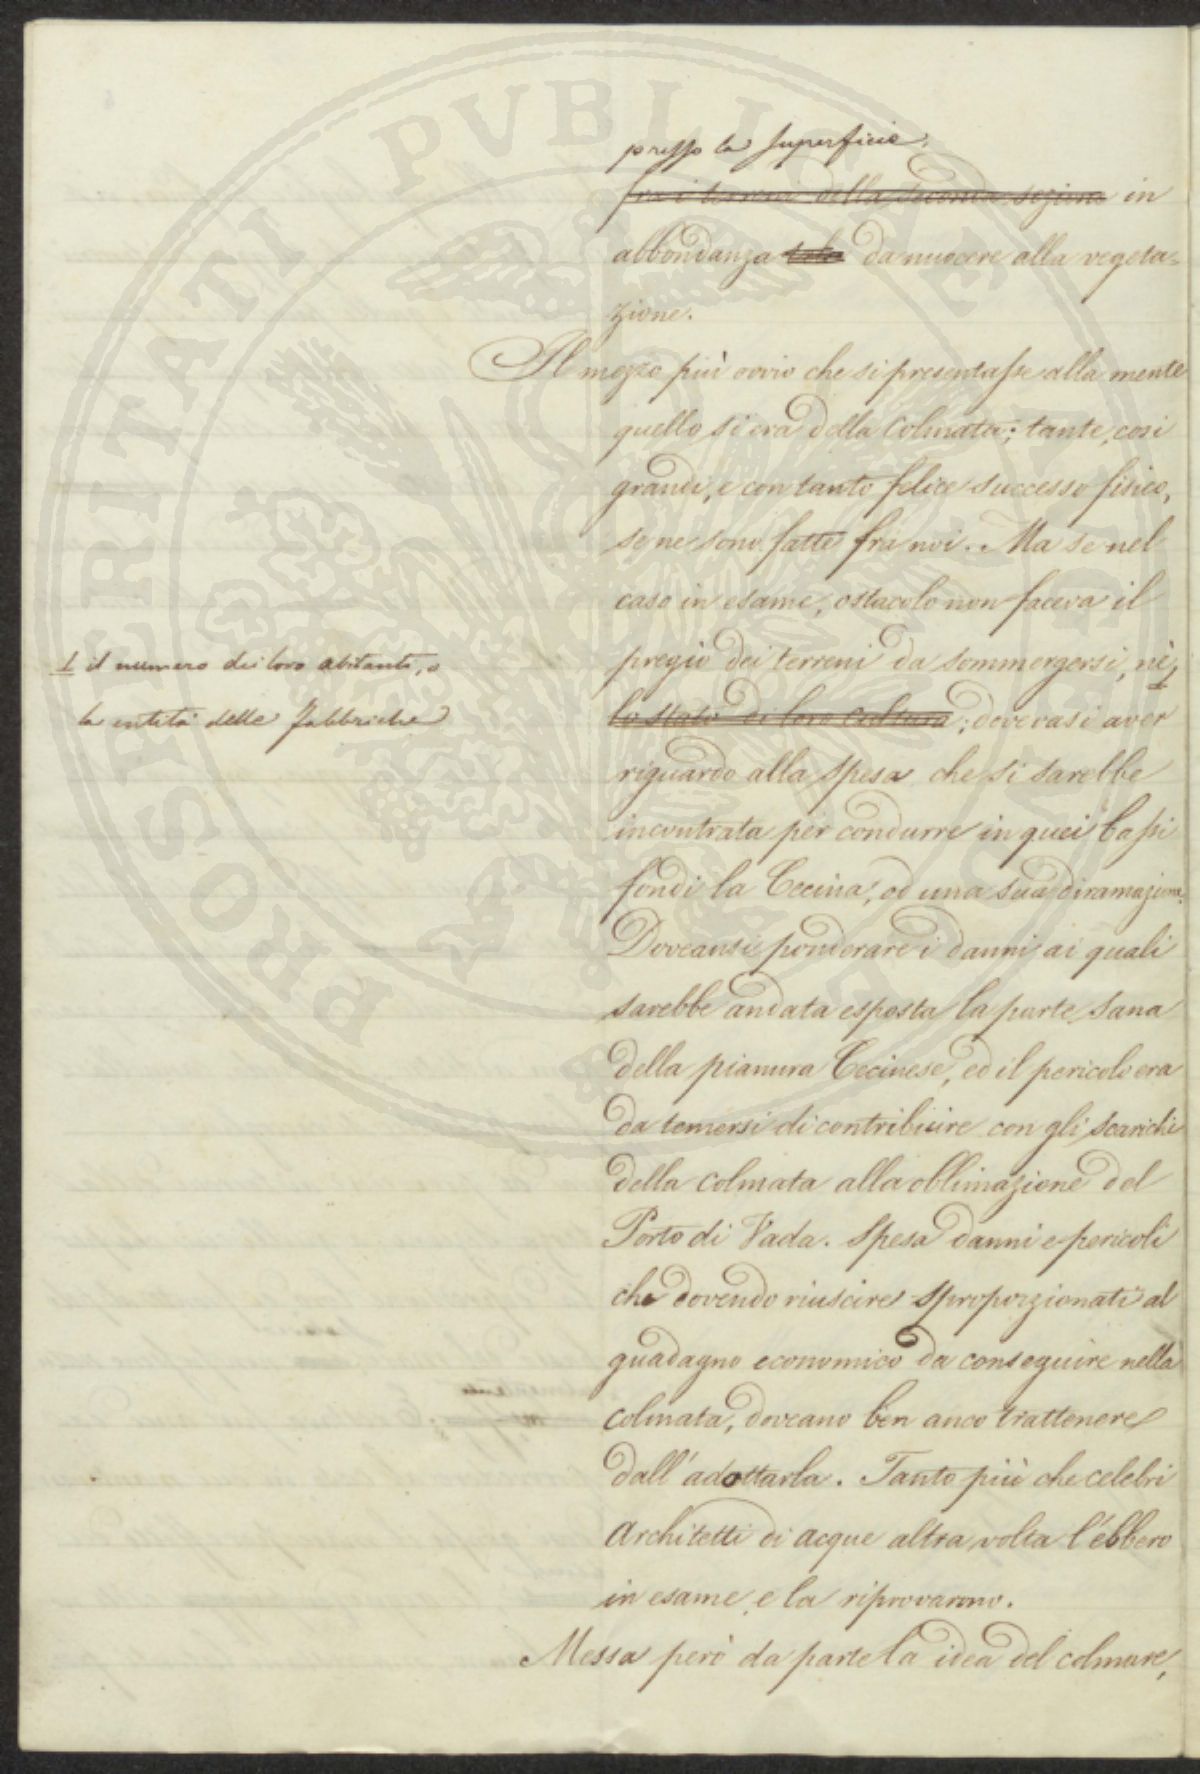 presso la superficie,
fra i terreni della seconda sezione in
abbondanza tale da nuocere alla vegeta=
zione.
Il mezzo più ovvio che si presentasse alla mente
quello si era della Colmata; tante, così
grandi, e con tanto felice successo fisico,
se ne sono fatte fra noi. Ma se nel
caso in esame, ostacolo non faceva il
pregio dei terreni da sommergersi, nè
1 il numero dei loro abitanti, o
la entità delle fabbriche
lo stato di loro cultura; dovevasi aver
riguardo alla spesa che si sarebbe
incontrata per condurre in quei bassi
fondi la Cecina, od una sua diramazione.
Doveansi ponderare i danni ai quali
sarebbe andata esposta la parte sana
della pianura Cecinese, ed il pericolo era
da temersi di contribuire con gli scarichi
della colmata alla oblimazione del
Porto di Vada. Spesa danni e pericoli
che dovendo riuscire sproporzionati al
guadagno economico da conseguire nella
colmata, doveano ben anco trattenere
dall'adottarla. Tanto più che celebri
Architetti di acque altra volta l'ebbero
in esame e la riprovarono.
Messa però da parte la idea del colmare,
PROSPERITATI PVBLICAE